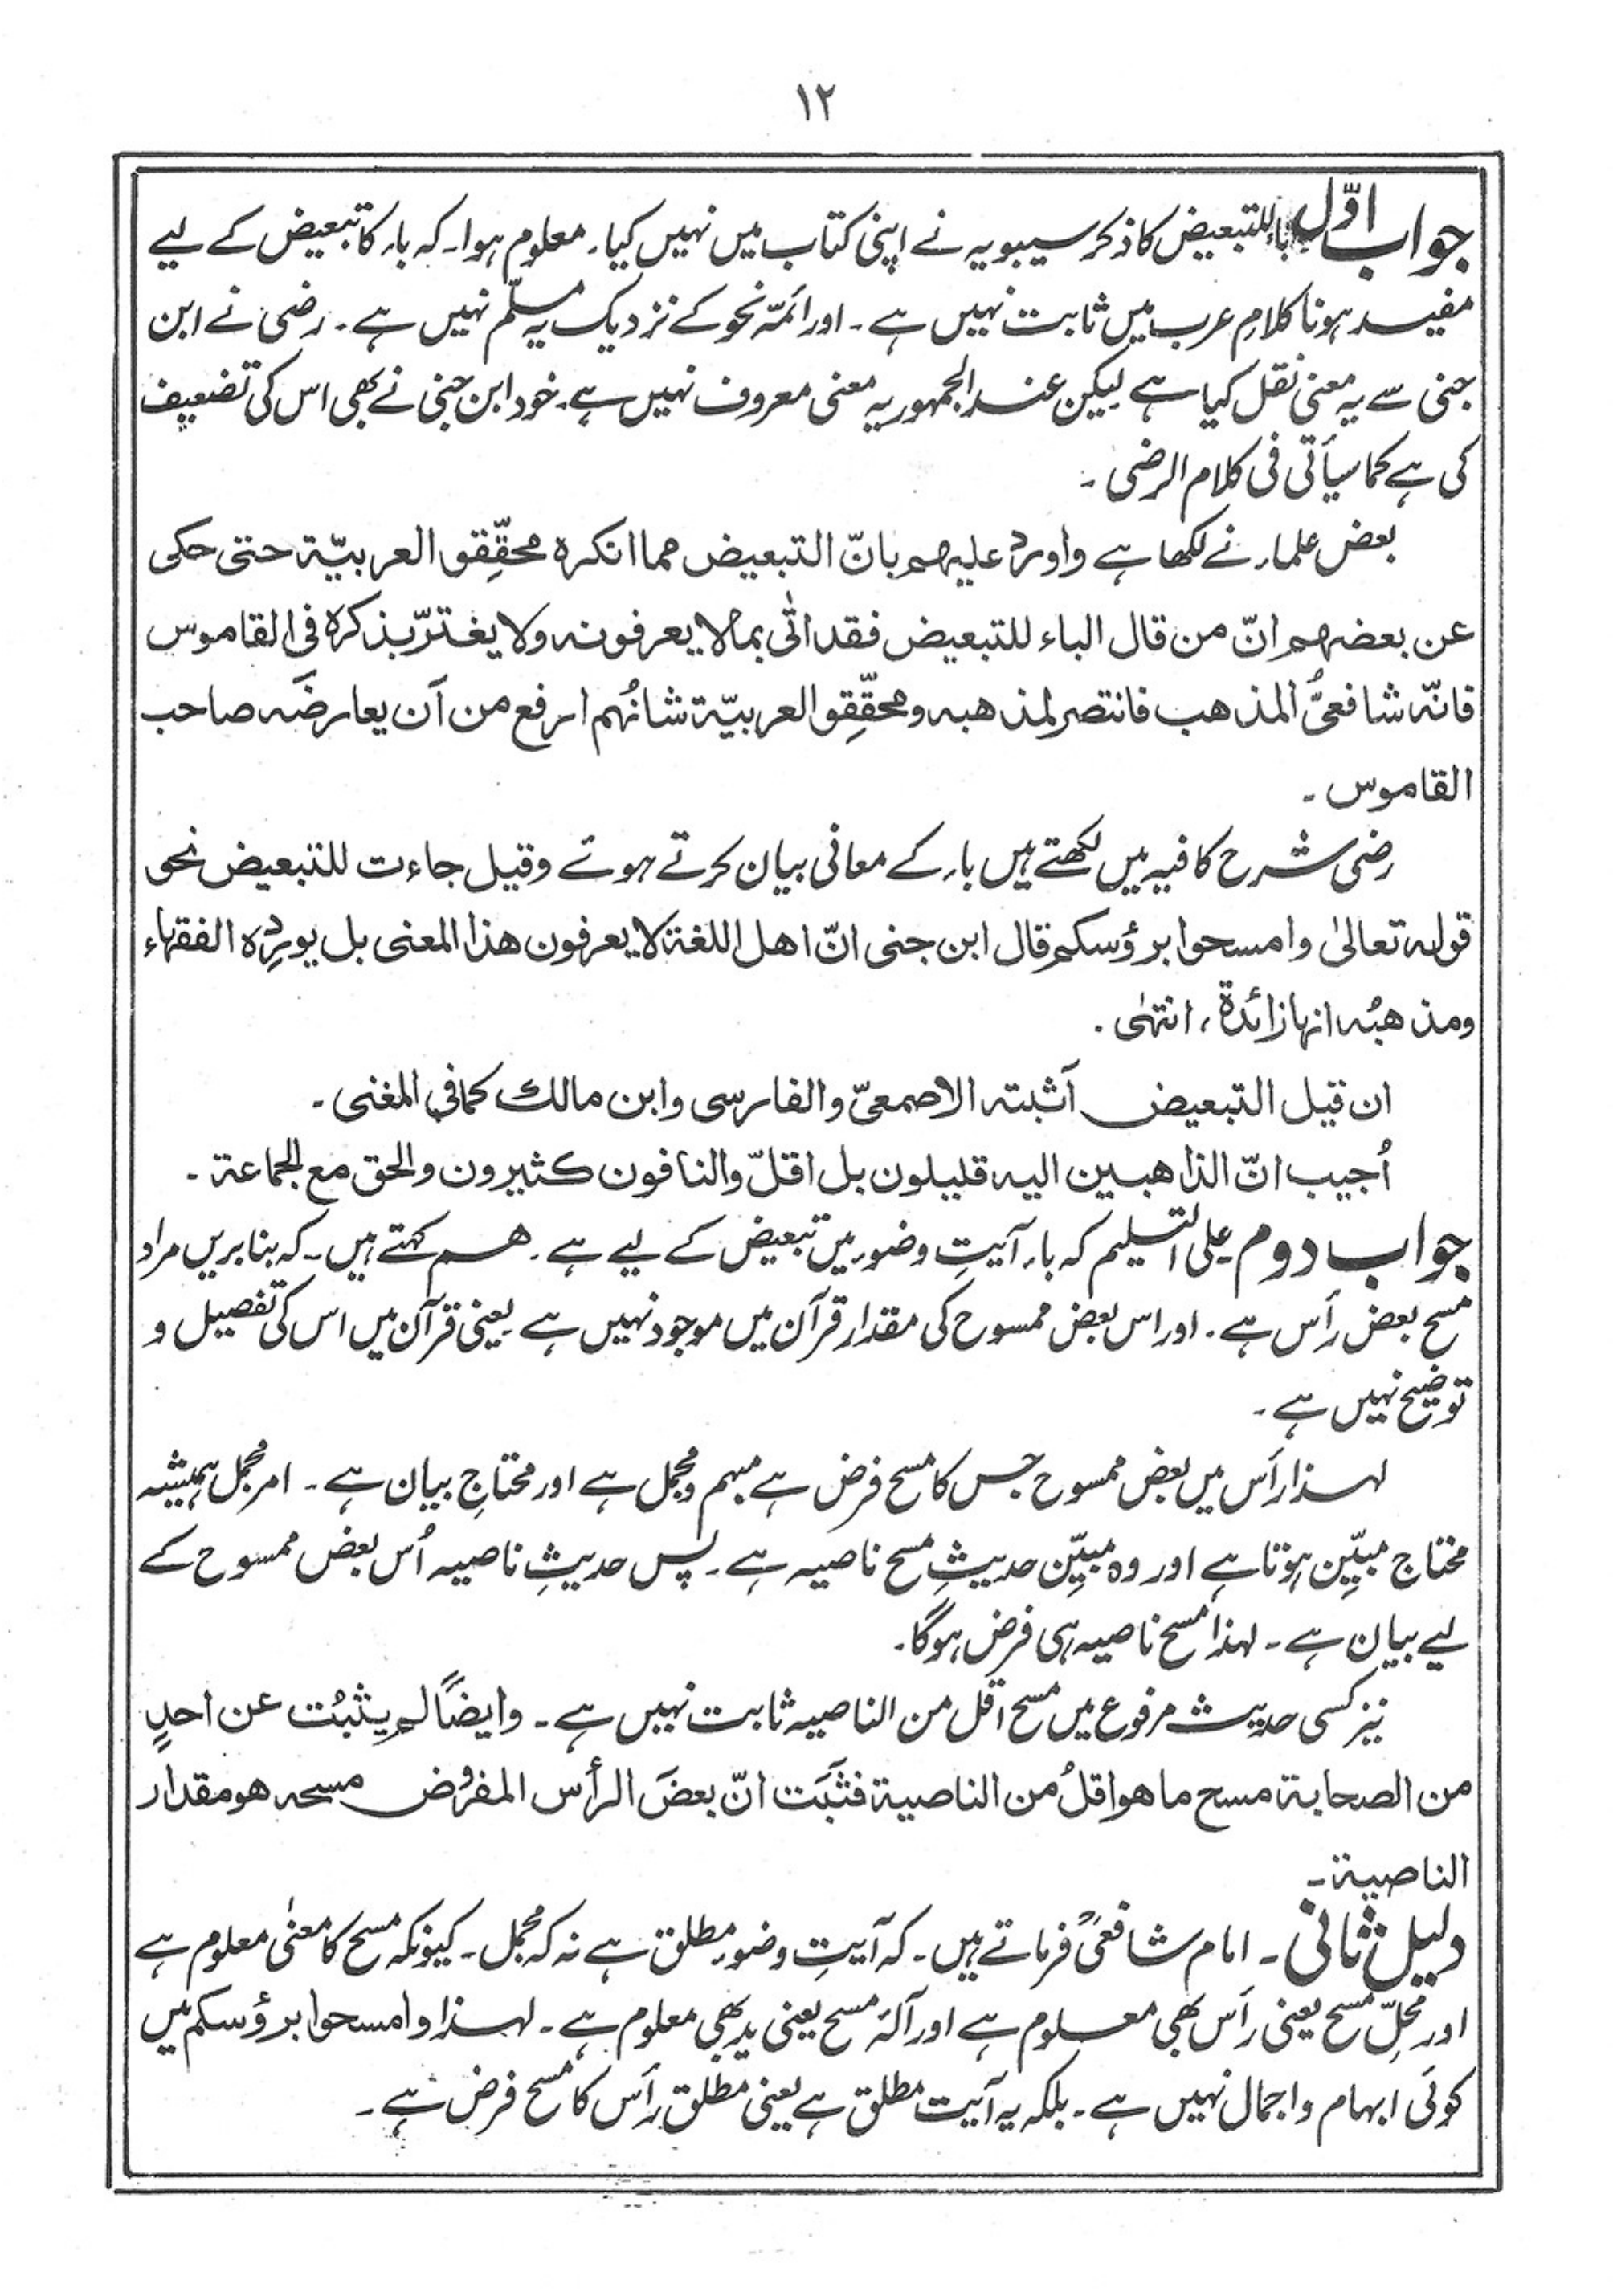 ۱۲
جواب اوّل باء للتبعیض کا ذکر سیبویہ نے اپنی کتاب میں نہیں کیا۔ معلوم ہوا۔ کہ باء کا تبعیض کے لیے
مفید ہونا کلامِ عرب میں ثابت نہیں ہے۔ اور ائمّہ نحو کے نزدیک یہ مسلّم نہیں ہے۔ رضی نے ابن
جنی سے یہ معنی نقل کیا ہے لیکن عند الجمہور یہ معنی معروف نہیں ہے۔ خود ابن جنی نے بھی اس کی تضعیف
کی ہے کما سیأتی فی کلام الرضی ۔
بعض علماء نے لکھا ہے واورد علیہم بانّ التبعیض مما انکرہ محقّقو العربیّۃ حتی حکی
عن بعضہم انّ من قال الباء للتبعیض فقد اتٰی بما لا یعرفونہ ولا یغترّ بذکرہ فی القاموس
فانّہ شافعیُّ المذھب فانتصر لمذھبہ ومحقّقو العربیّۃ شانُہم ارفع من اَن یعارضَہ صاحب
القاموس ۔
رضی شرح کافیہ میں لکھتے ہیں باء کے معانی بیان کرتے ہوئے وقیل جاءت للتبعیض نحو
قولہ تعالیٰ وامسحوا برؤسکم قال ابن جنی انّ اھل اللغۃ لا یعرفون ھذا المعنی بل یوردہ الفقہاء
ومذھبُہ انہا زائدۃ، انتہٰی ۔
ان قیل التبعیض اَثبتہ الاصمعیّ والفارسی وابن مالک کما فی المغنی ۔
اُجیب انّ الذاھبین الیہ قلیلون بل اقلّ والنافون کثیرون والحق مع الجماعۃ ۔
جواب دوم علی التسلیم کہ باء آیتِ وضوء میں تبعیض کے لیے ہے۔ ھم کہتے ہیں۔ کہ بنا بریں مراد
مسح بعض رأس ہے۔ اور اس بعض ممسوح کی مقدار قرآن میں موجود نہیں ہے یعنی قرآن میں اس کی تفصیل و
توضیح نہیں ہے ۔
لہذا رأس میں بعض ممسوح جس کا مسح فرض ہے مبہم و مجمل ہے اور محتاجِ بیان ہے ۔ امر مجمل ہمیشہ
محتاج مبیِّن ہوتا ہے اور وہ مبیِّن حدیثِ مسح ناصیہ ہے۔ پس حدیثِ ناصیہ اُس بعض ممسوح کے
لیے بیان ہے ۔ لہذا مسح ناصیہ ہی فرض ہوگا۔
نیز کسی حدیث مرفوع میں مسح اقل من الناصیہ ثابت نہیں ہے۔ وایضًا لم یثبُت عن احدٍ
من الصحابۃ مسح ما ھو اقلُ من الناصیۃ فثَبَت انّ بعضَ الرأس المفروض مسحہ ھو مقدار
الناصیۃ ۔
دلیل ثانی ۔ امام شافعیؒ فرماتے ہیں۔ کہ آیتِ وضوء مطلق ہے نہ کہ مجمل۔ کیونکہ مسح کا معنیٰ معلوم ہے
اور محلِّ مسح یعنی رأس بھی معلوم ہے اور آلۂ مسح یعنی ید بھی معلوم ہے۔ لہذا وامسحوا برؤسکم میں
کوئی ابہام و اجمال نہیں ہے۔ بلکہ یہ آیت مطلق ہے یعنی مطلق رأس کا مسح فرض ہے ۔